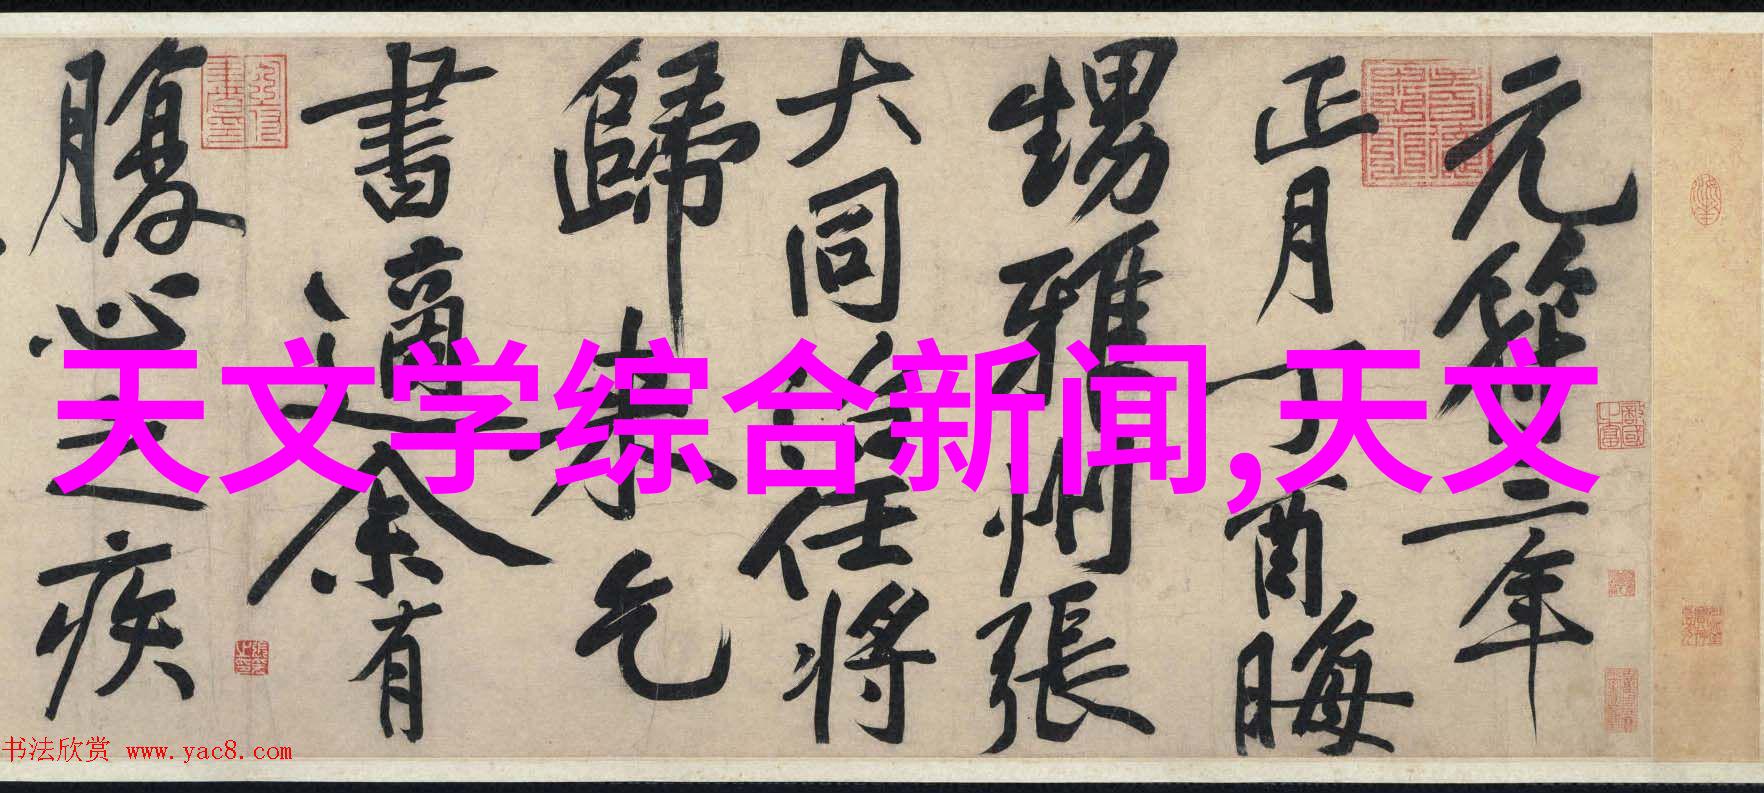 元符三年
正月丁酉晦
甥雅州張
大同治任將
歸來乞
書適余有
腹心之疾
天文学综合新闻,天文
书法欣赏 www.yac8.com